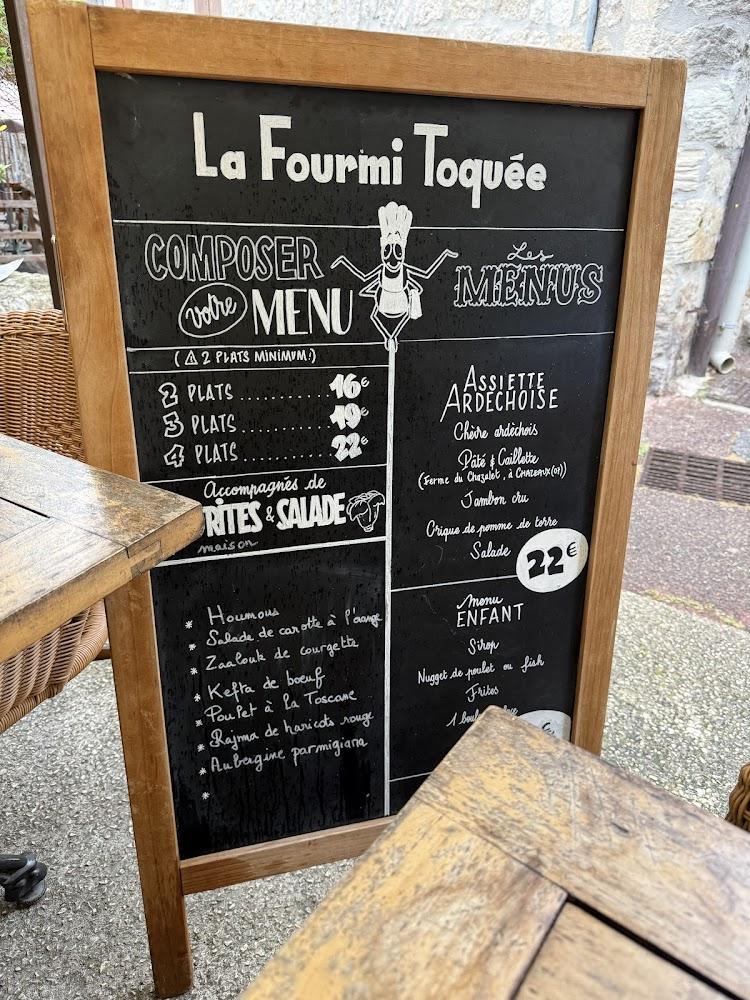 La Fourmi Toquée
COMPOSER
votre MENU
(⚠ 2 PLATS MINIMUM!)
2 PLATS .......... 16€
3 PLATS .......... 19€
4 PLATS .......... 22€
Accompagnés de
RITES & SALADE
maison
* Houmous
* Salade de carotte à l'orange
* Zaalouk de courgette
* Kefta de boeuf
* Poulet à la Toscane
* Rajma de haricots rouge
* Aubergine parmigiana
*
Les
MENUS
ASSIETTE
ARDÉCHOISE
Chèvre ardéchois
Pâté & Caillette
(Ferme du Chazalet, à CHAZEAUX(07))
Jambon cru
Crique de pomme de terre
Salade
22€
menu
ENFANT
Sirop
Nugget de poulet ou fish
Frites
1